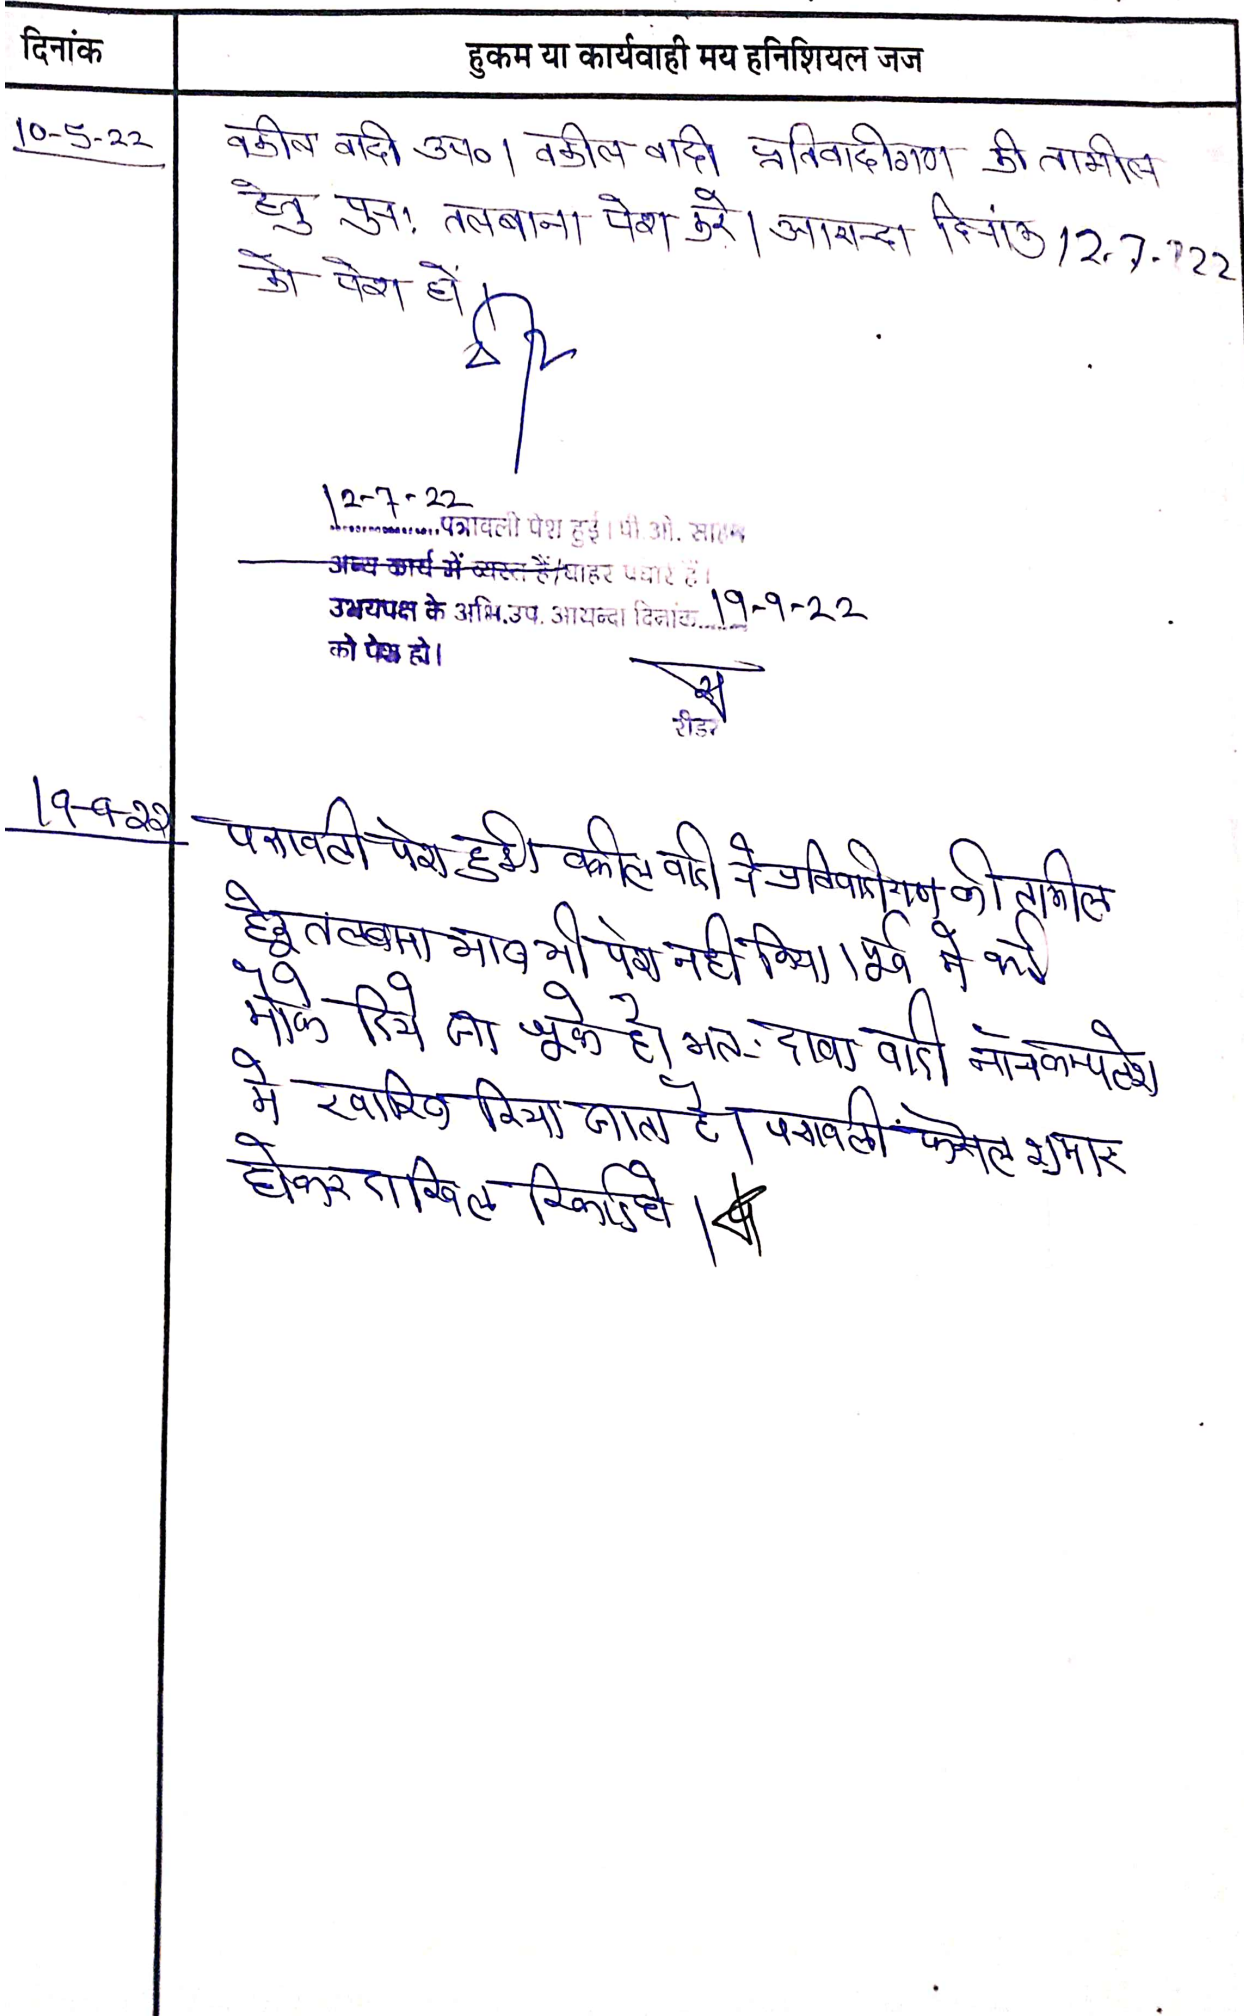 दिनांक
हुकम या कार्यवाही मय हनिशियल जज
10-5-22
वकील वादी उप०। वकील वादी प्रतिवादीगण की तामील
हेतु पुनः तलबाना पेश करे। आयन्दा दिनांक 12-7-22
को पेश हों।
12-7-22
............पत्रावली पेश हुई। पी.ओ. साहब
अन्य कार्य में व्यस्त हैं/बाहर पधारे हैं।
उभयपक्ष के अभि.उप. आयन्दा दिनांक 19-9-22
को पेश हो।
रीडर
19-9-22
पत्रावली पेश हुई। वकील वादी ने प्रतिवादीगण की तामील
हेतु तलबाना आज भी पेश नहीं किया। पूर्व में कई
मौके दिये जा चूके है। अतः दावा वादी नॉनकम्पलेश
मे खारिज किया जाता है। पत्रावली फैसल शुमार
होकर दाखिल रिकार्ड हो।